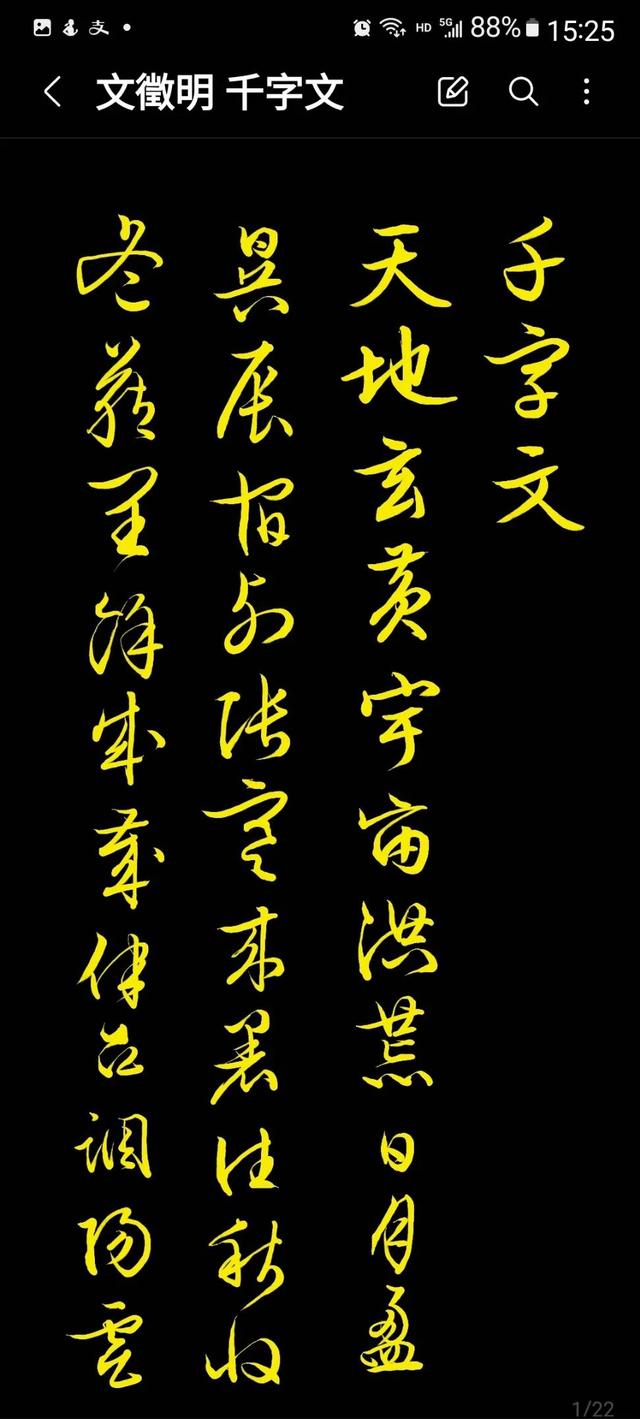 HD 5G 88% 15:25
文徵明 千字文
千字文
天地玄黄宇宙洪荒日月盈
昃辰宿列张寒来暑往秋收
冬藏闰馀成岁律吕调阳云
1/22